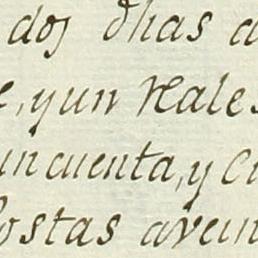 dos dhas
, y un Reales
incuenta, y
ostas avein